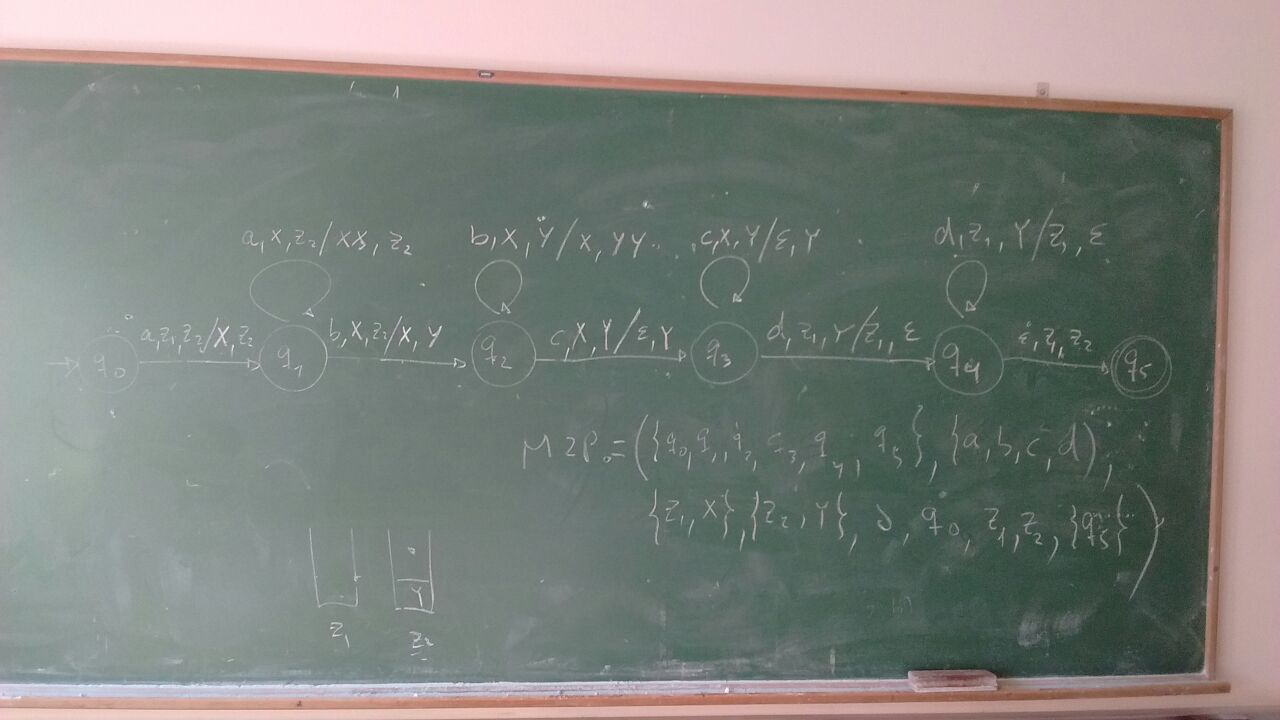 a, X, Z₂/XX, Z₂
b, X, Y/X, YY
c, X, Y/ε, Y
d, Z₁, Y/Z₁, ε
a, Z₁, Z₂/X, Z₂
b, X, Z₂/X, Y
c, X, Y/ε, Y
d, Z₁, Y/Z₁, ε
ε, Z₁, Z₂
q₀ q₁ q₂ q₃ q₄ q₅
M2P₀=({q₀, q₁, q₂, q₃, q₄, q₅}, {a, b, c, d},
{Z₁, X}, {Z₂, Y}, δ, q₀, Z₁, Z₂, {q₅})
Y
Z₁ Z₂